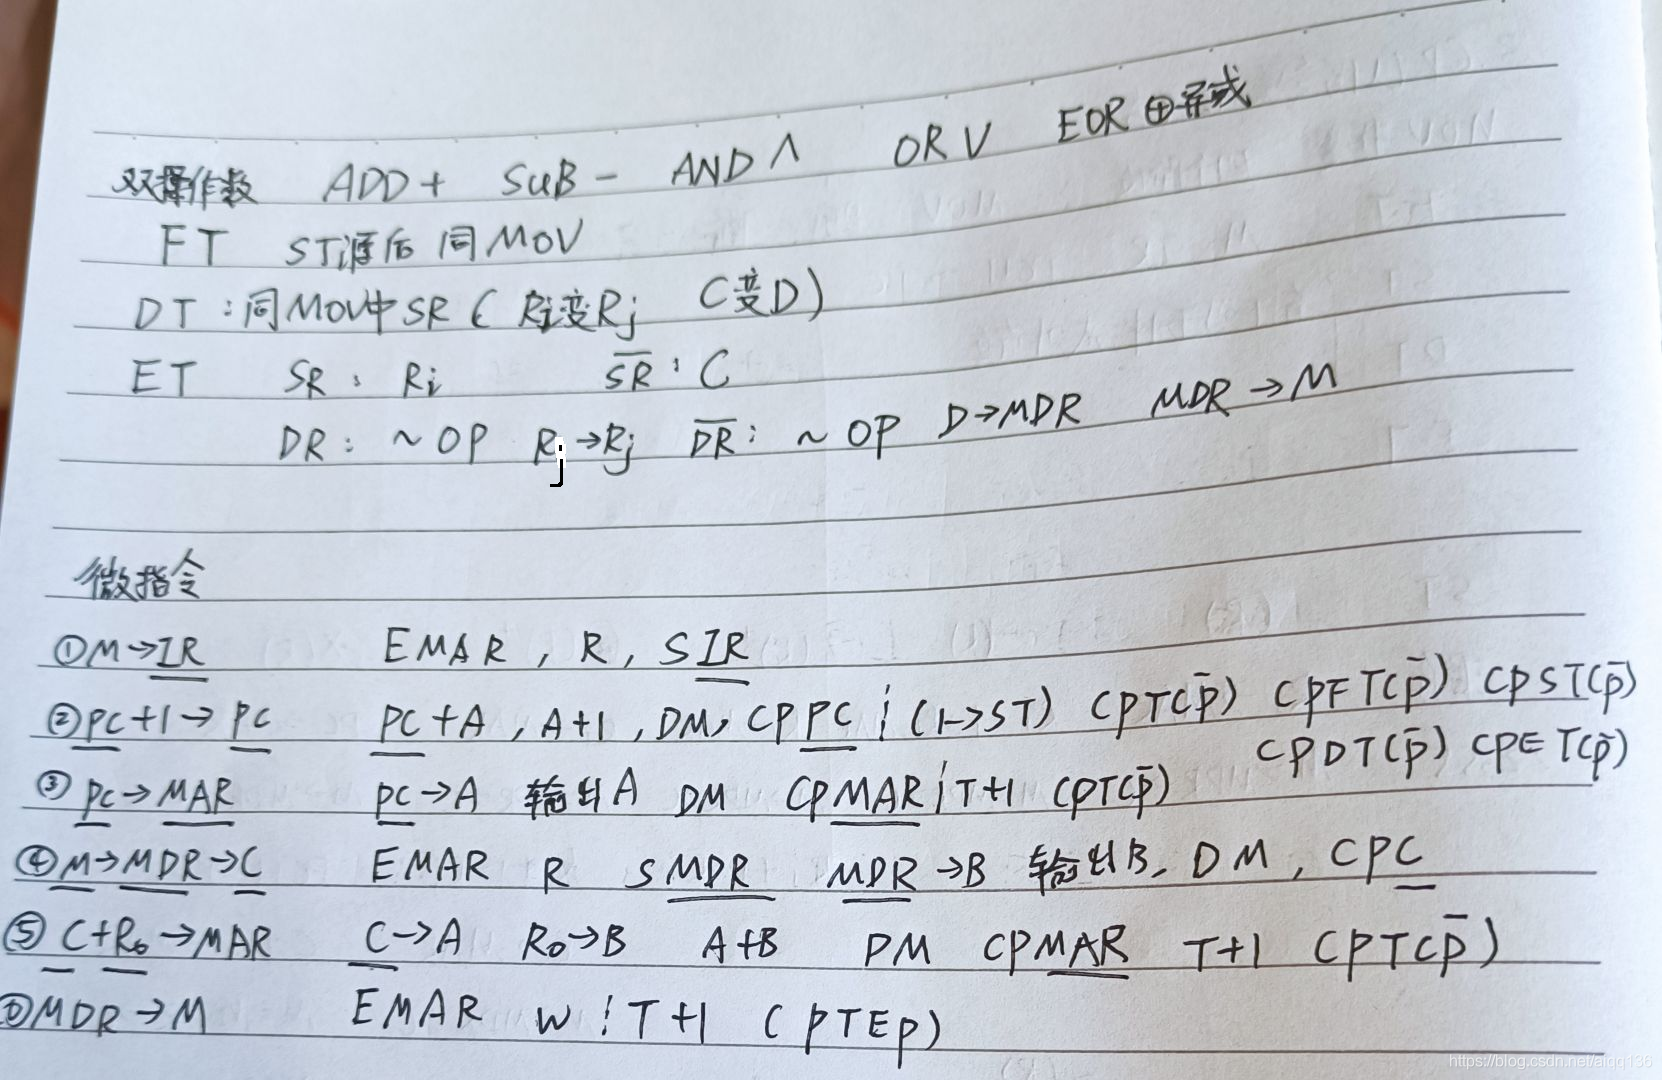 双操作数 ADD+ SUB- AND∧ OR∨ EOR⊕异或
FT ST源后 同MOV
DT:同MOV中SR(Ri变Rj C变D)
ET SR: Ri S̅R̅: C
DR: ~OP Rj→Rj D̅R̅: ~OP D→MDR MDR→M
微指令
①M→IR EMAR, R, SIR
②PC+1→PC PC+A, A+1, DM, CPPC ¦ (1→ST) CPT(p̅) CPFT(p̅) CPST(p̅)
CPDT(p̅) CPET(p̅)
③PC→MAR PC→A 输出A DM CPMAR ¦ T+1 CPT(p̅)
④M→MDR→C EMAR R SMDR MDR→B 输出B, DM, CPC
⑤C+R₀→MAR C→A R₀→B A+B DM CPMAR T+1 CPT(p̅)
MDR→M EMAR W ¦ T+1 (PTEp)
https://blog.csdn.net/aiqq136